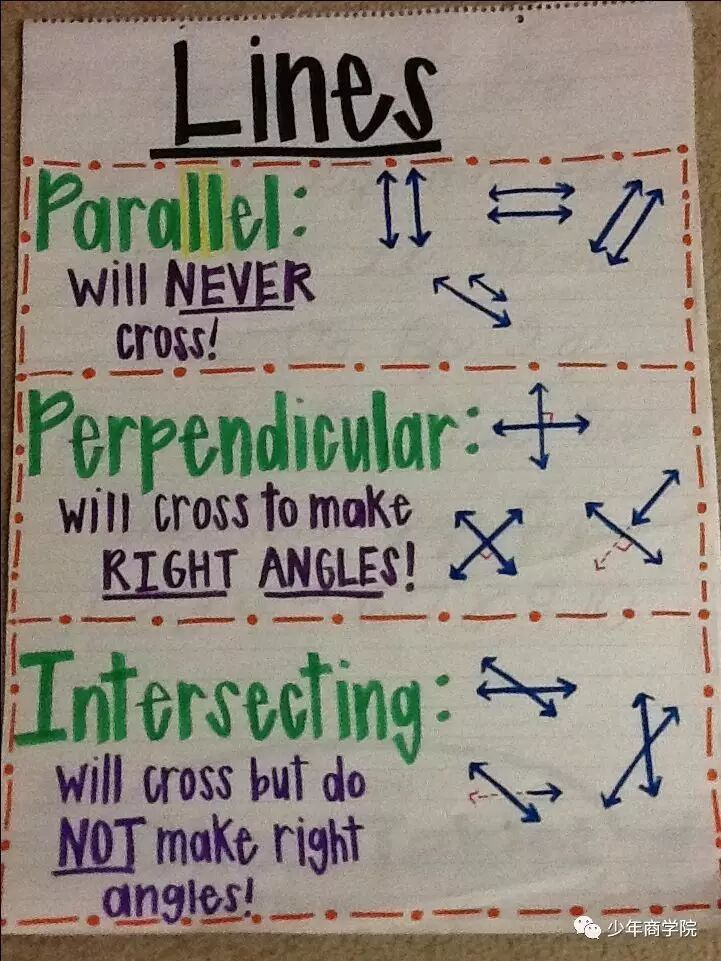 Lines
Parallel:
will NEVER
cross!
Perpendicular:
will cross to make
RIGHT ANGLES!
Intersecting:
will cross but do
NOT make right
angles!
少年商学院